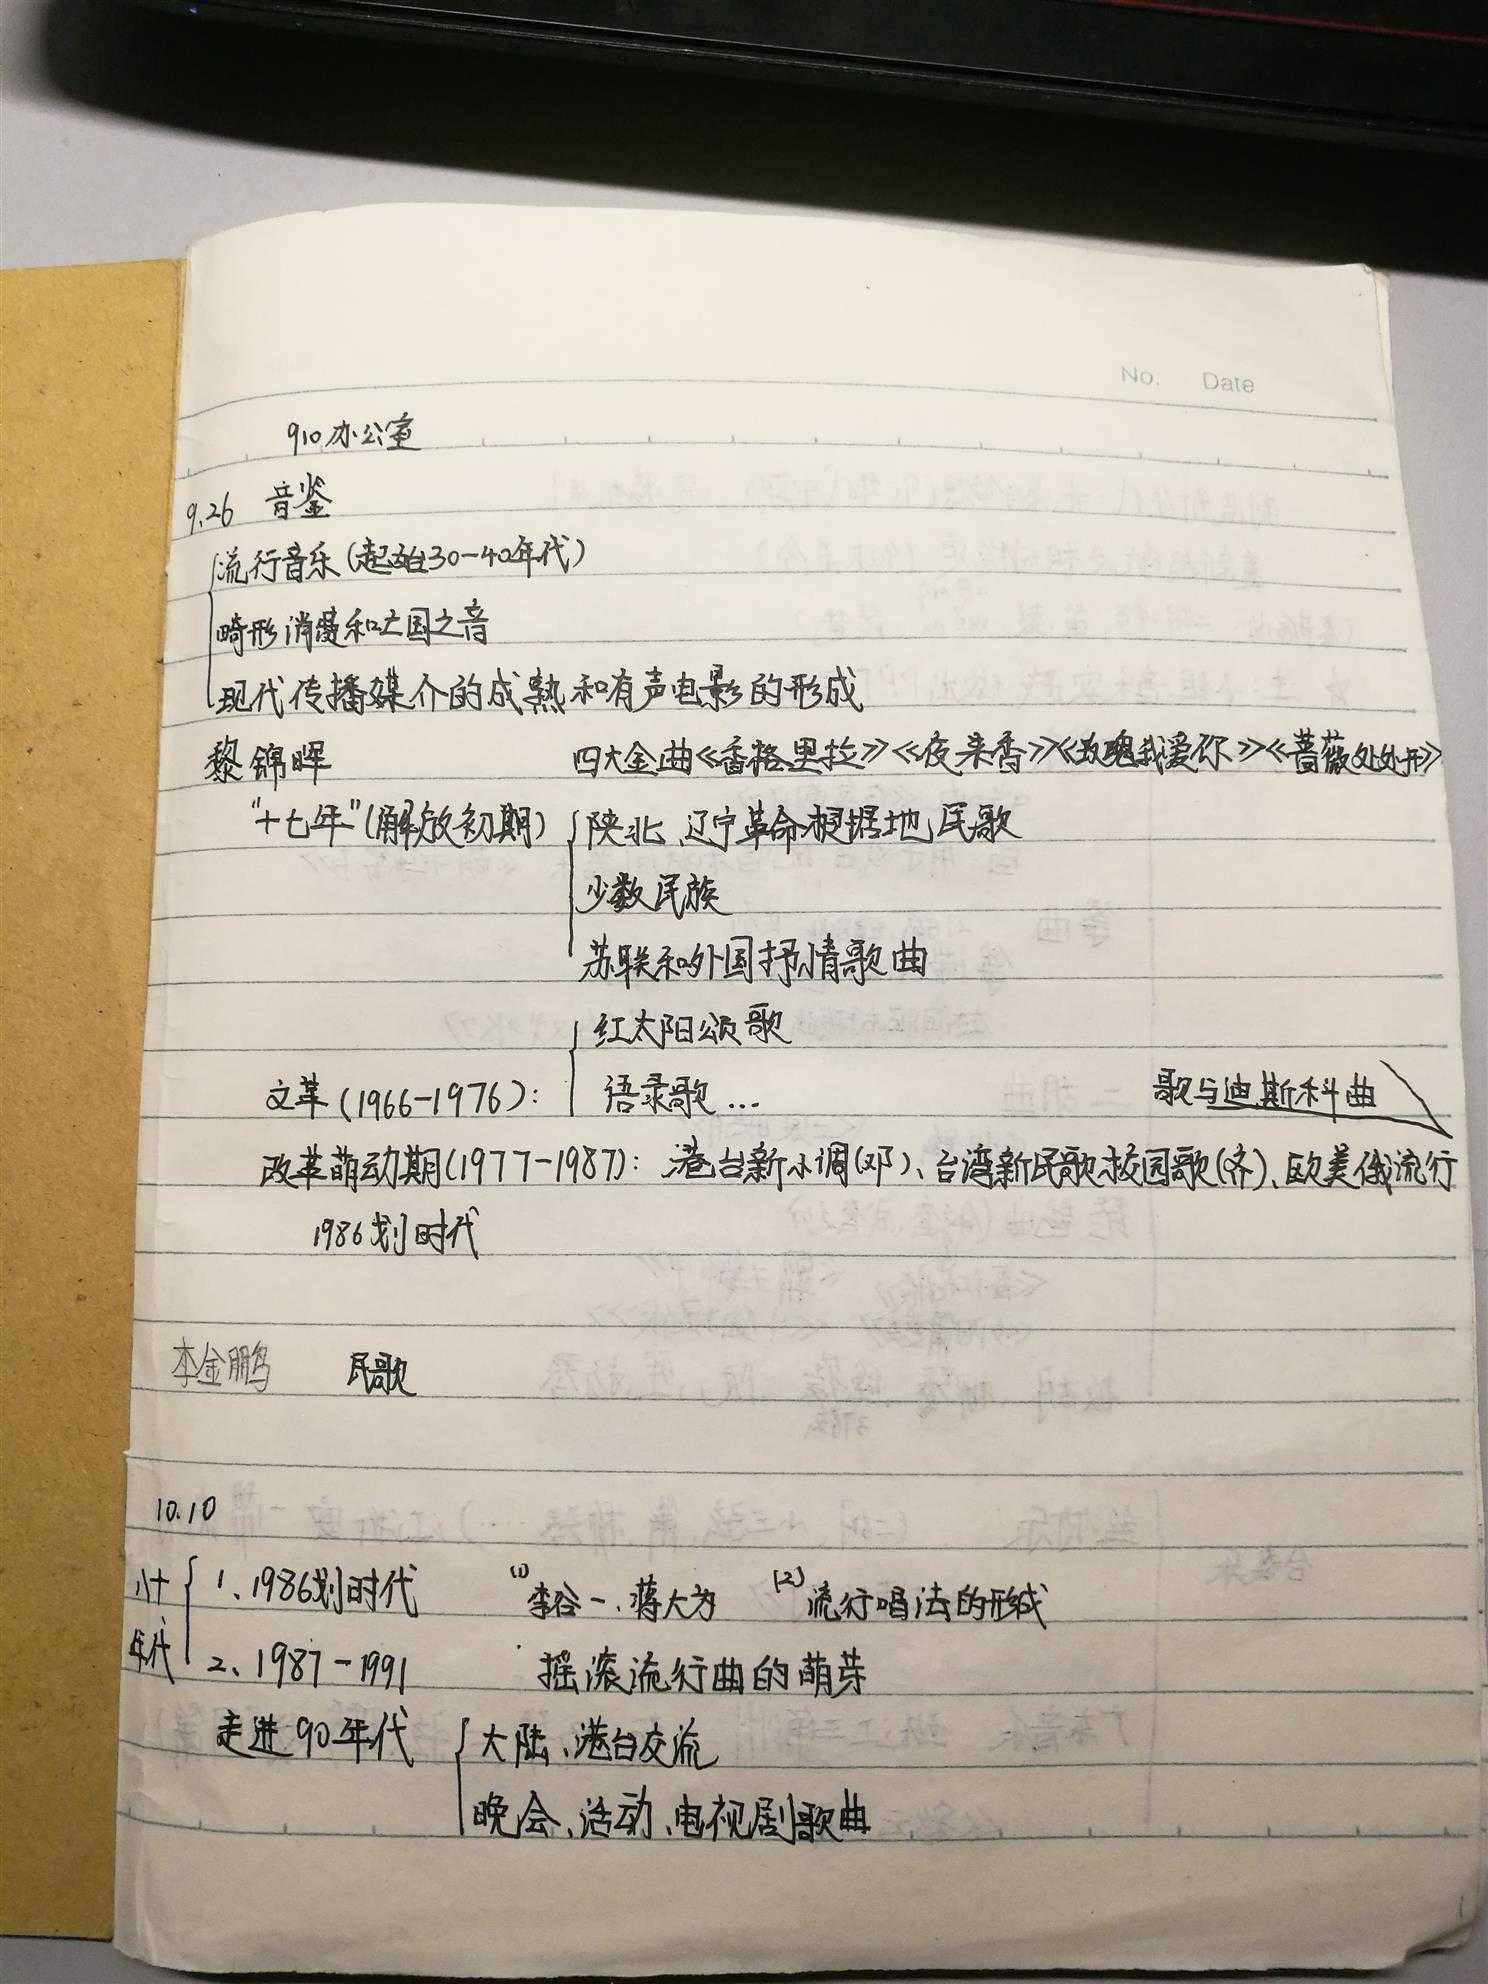 No. Date
910办公室
9.26 音鉴
流行音乐(起始30-40年代)
畸形消费和亡国之音
现代传播媒介的成熟和有声电影的形成
黎锦晖 四大金曲《香格里拉》《夜来香》《玫瑰我爱你》《蔷薇处处开》
"十七年"(解放初期) 陕北、辽宁革命根据地民歌
少数民族
苏联和外国抒情歌曲
红太阳颂歌
文革(1966-1976): 语录歌...
歌与迪斯科曲
改革萌动期(1977-1987): 港台新小调(邓)、台湾新民歌校园歌(齐)、欧美俄流行
1986划时代
李金鹏 民歌
10.10
八十年代 1、1986划时代 (1)李谷一、蒋大为 (2)流行唱法的形成
2、1987-1991 摇滚流行曲的萌芽
走进90年代 大陆、港台交流
晚会、活动、电视剧歌曲